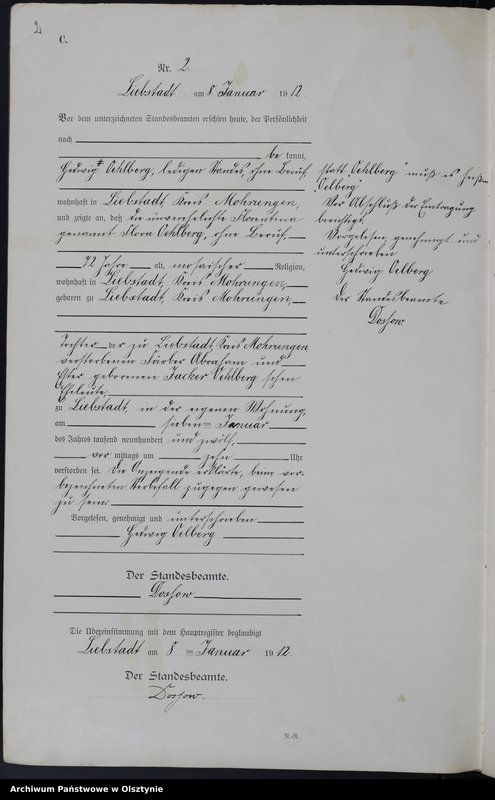 2
C.
Nr. 2.
Liebstadt am 8. Januar 1912.
Vor dem unterzeichneten Standesbeamten erschien heute, der Persönlichkeit
nach
bekannt,
Hedwig Oehlberg, ledigen Standes ohne Beruf,
wohnhaft in Liebstadt, Kreis Mohrungen,
und zeigte an, daß die unverehelichte Florentina
genannt Flora Oehlberg, ohne Beruf,
72 Jahre alt, mosaischer Religion,
wohnhaft in Liebstadt, Kreis Mohrungen,
geboren zu Liebstadt, Kreis Mohrungen,
Tochter der zu Liebstadt, Kreis Mohrungen
verstorbenen Färber Abraham und
Ester geborenen Oehlberg'schen
Eheleute,
zu Liebstadt, in der eigenen Wohnung,
am siebenten Januar
des Jahres tausend neunhundert und zwölf,
vor mittags um zehn Uhr
verstorben sei. Die Anzeigende erklärte, beim vor-
bezeichneten Sterbefall zugegen gewesen
zu sein.
Vorgelesen, genehmigt und unterschrieben
Hedwig Oelberg
Der Standesbeamte.
Dossow
Die Übereinstimmung mit dem Hauptregister beglaubigt
Liebstadt am 8 ten Januar 1912.
Der Standesbeamte.
Dossow.
statt "Oehlberg" muß es heißen
Oelberg
Vor Abschluß der Eintragung
berichtigt.
Vorgelesen, genehmigt und
unterschrieben
Hedwig Oelberg
Der Standesbeamte
Dossow
Archiwum Państwowe w Olsztynie